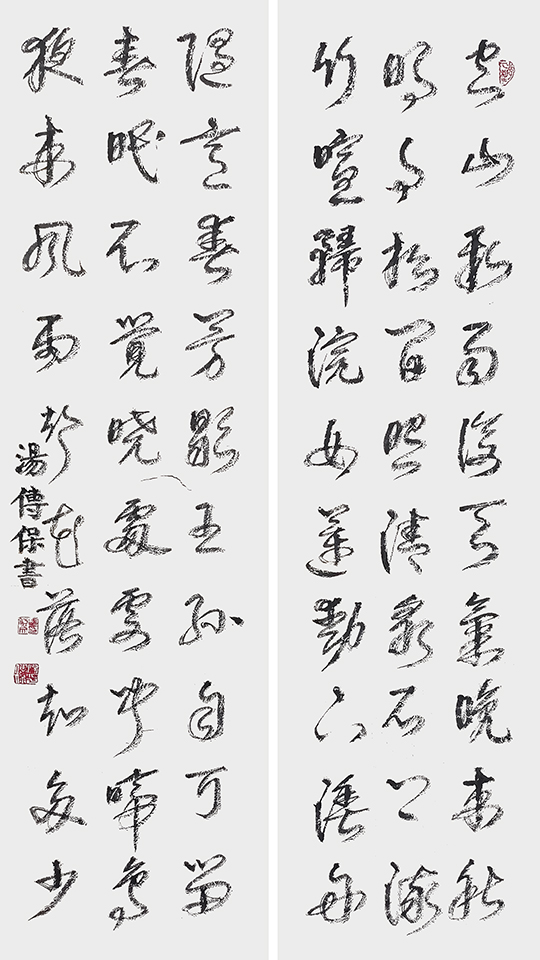 空山新雨後天氣晚來秋
明月松間照清泉石上流
竹喧歸浣女蓮動下漁舟
隨意春芳歇王孫自可留
春眠不覺曉處處聞啼鳥
夜來風雨聲花落知多少
湯傳保書